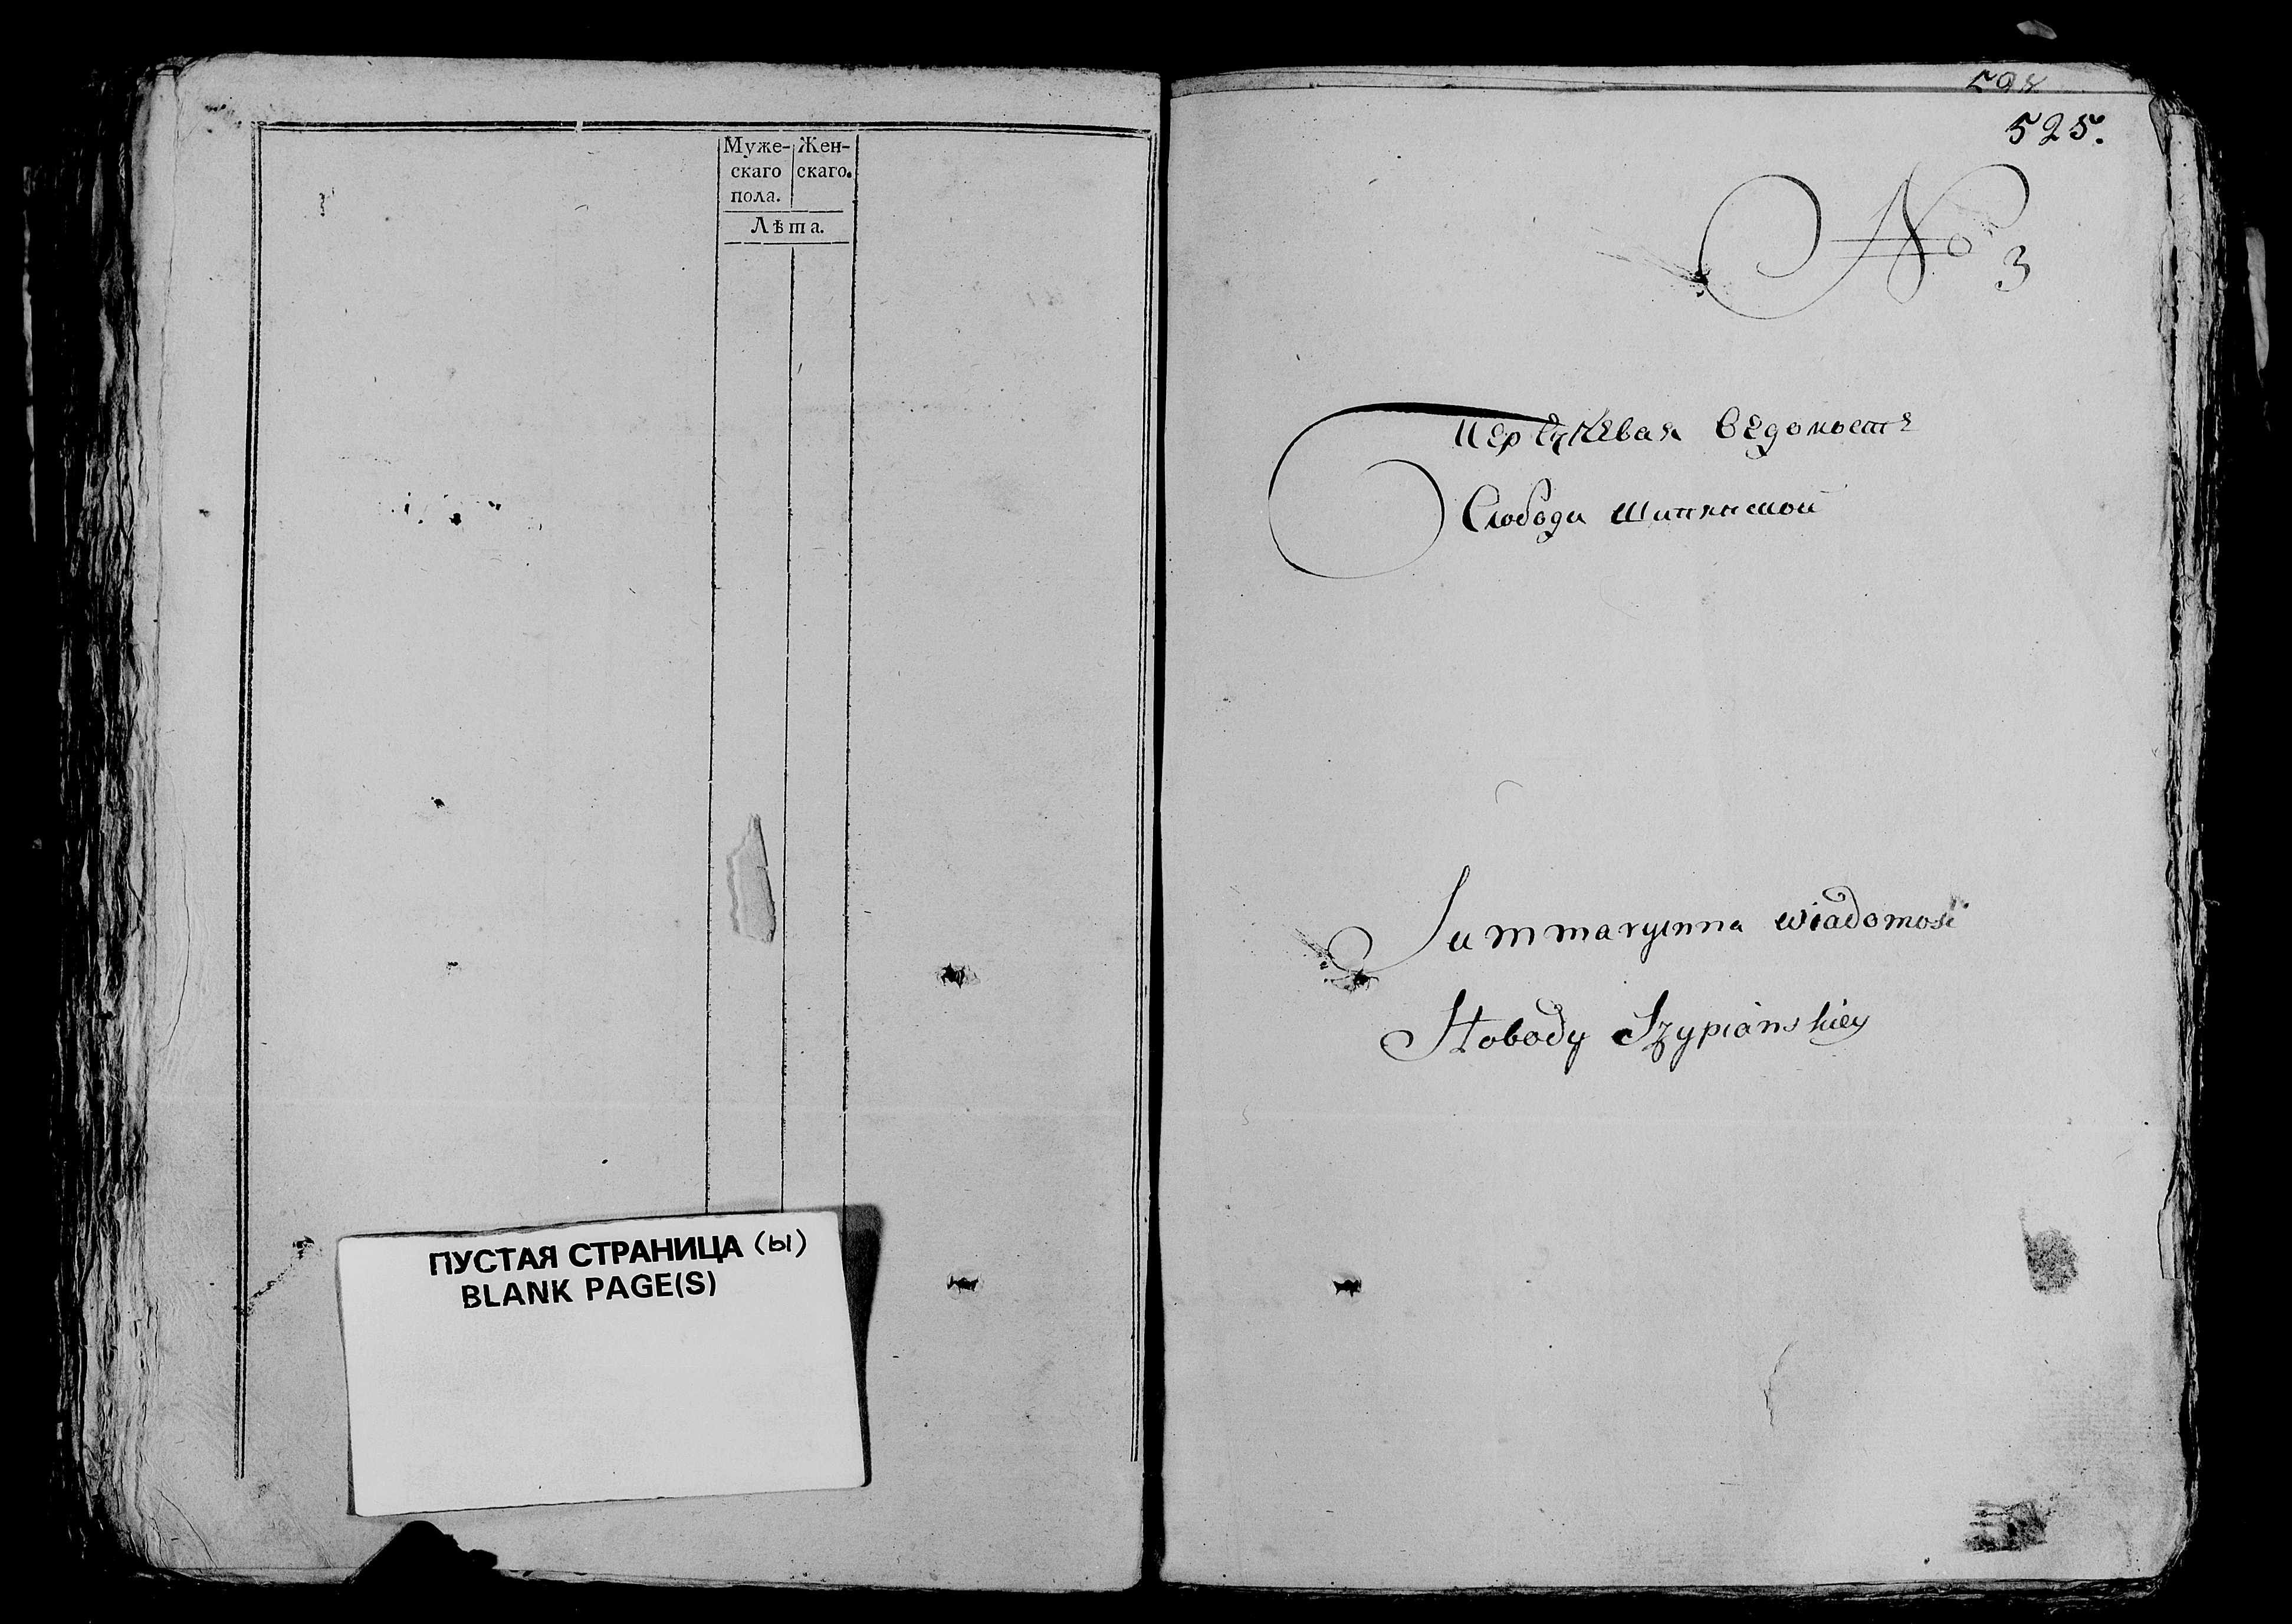 Муже-
скаго
пола.
Жен-
скаго.
Лѣта.
ПУСТАЯ СТРАНИЦА (Ы)
BLANK PAGE(S)
525.
№ 3
Перечневая ведомость
Слободи Шипянской
Summaryinna wiadomość
Słobody Szypiańskiey